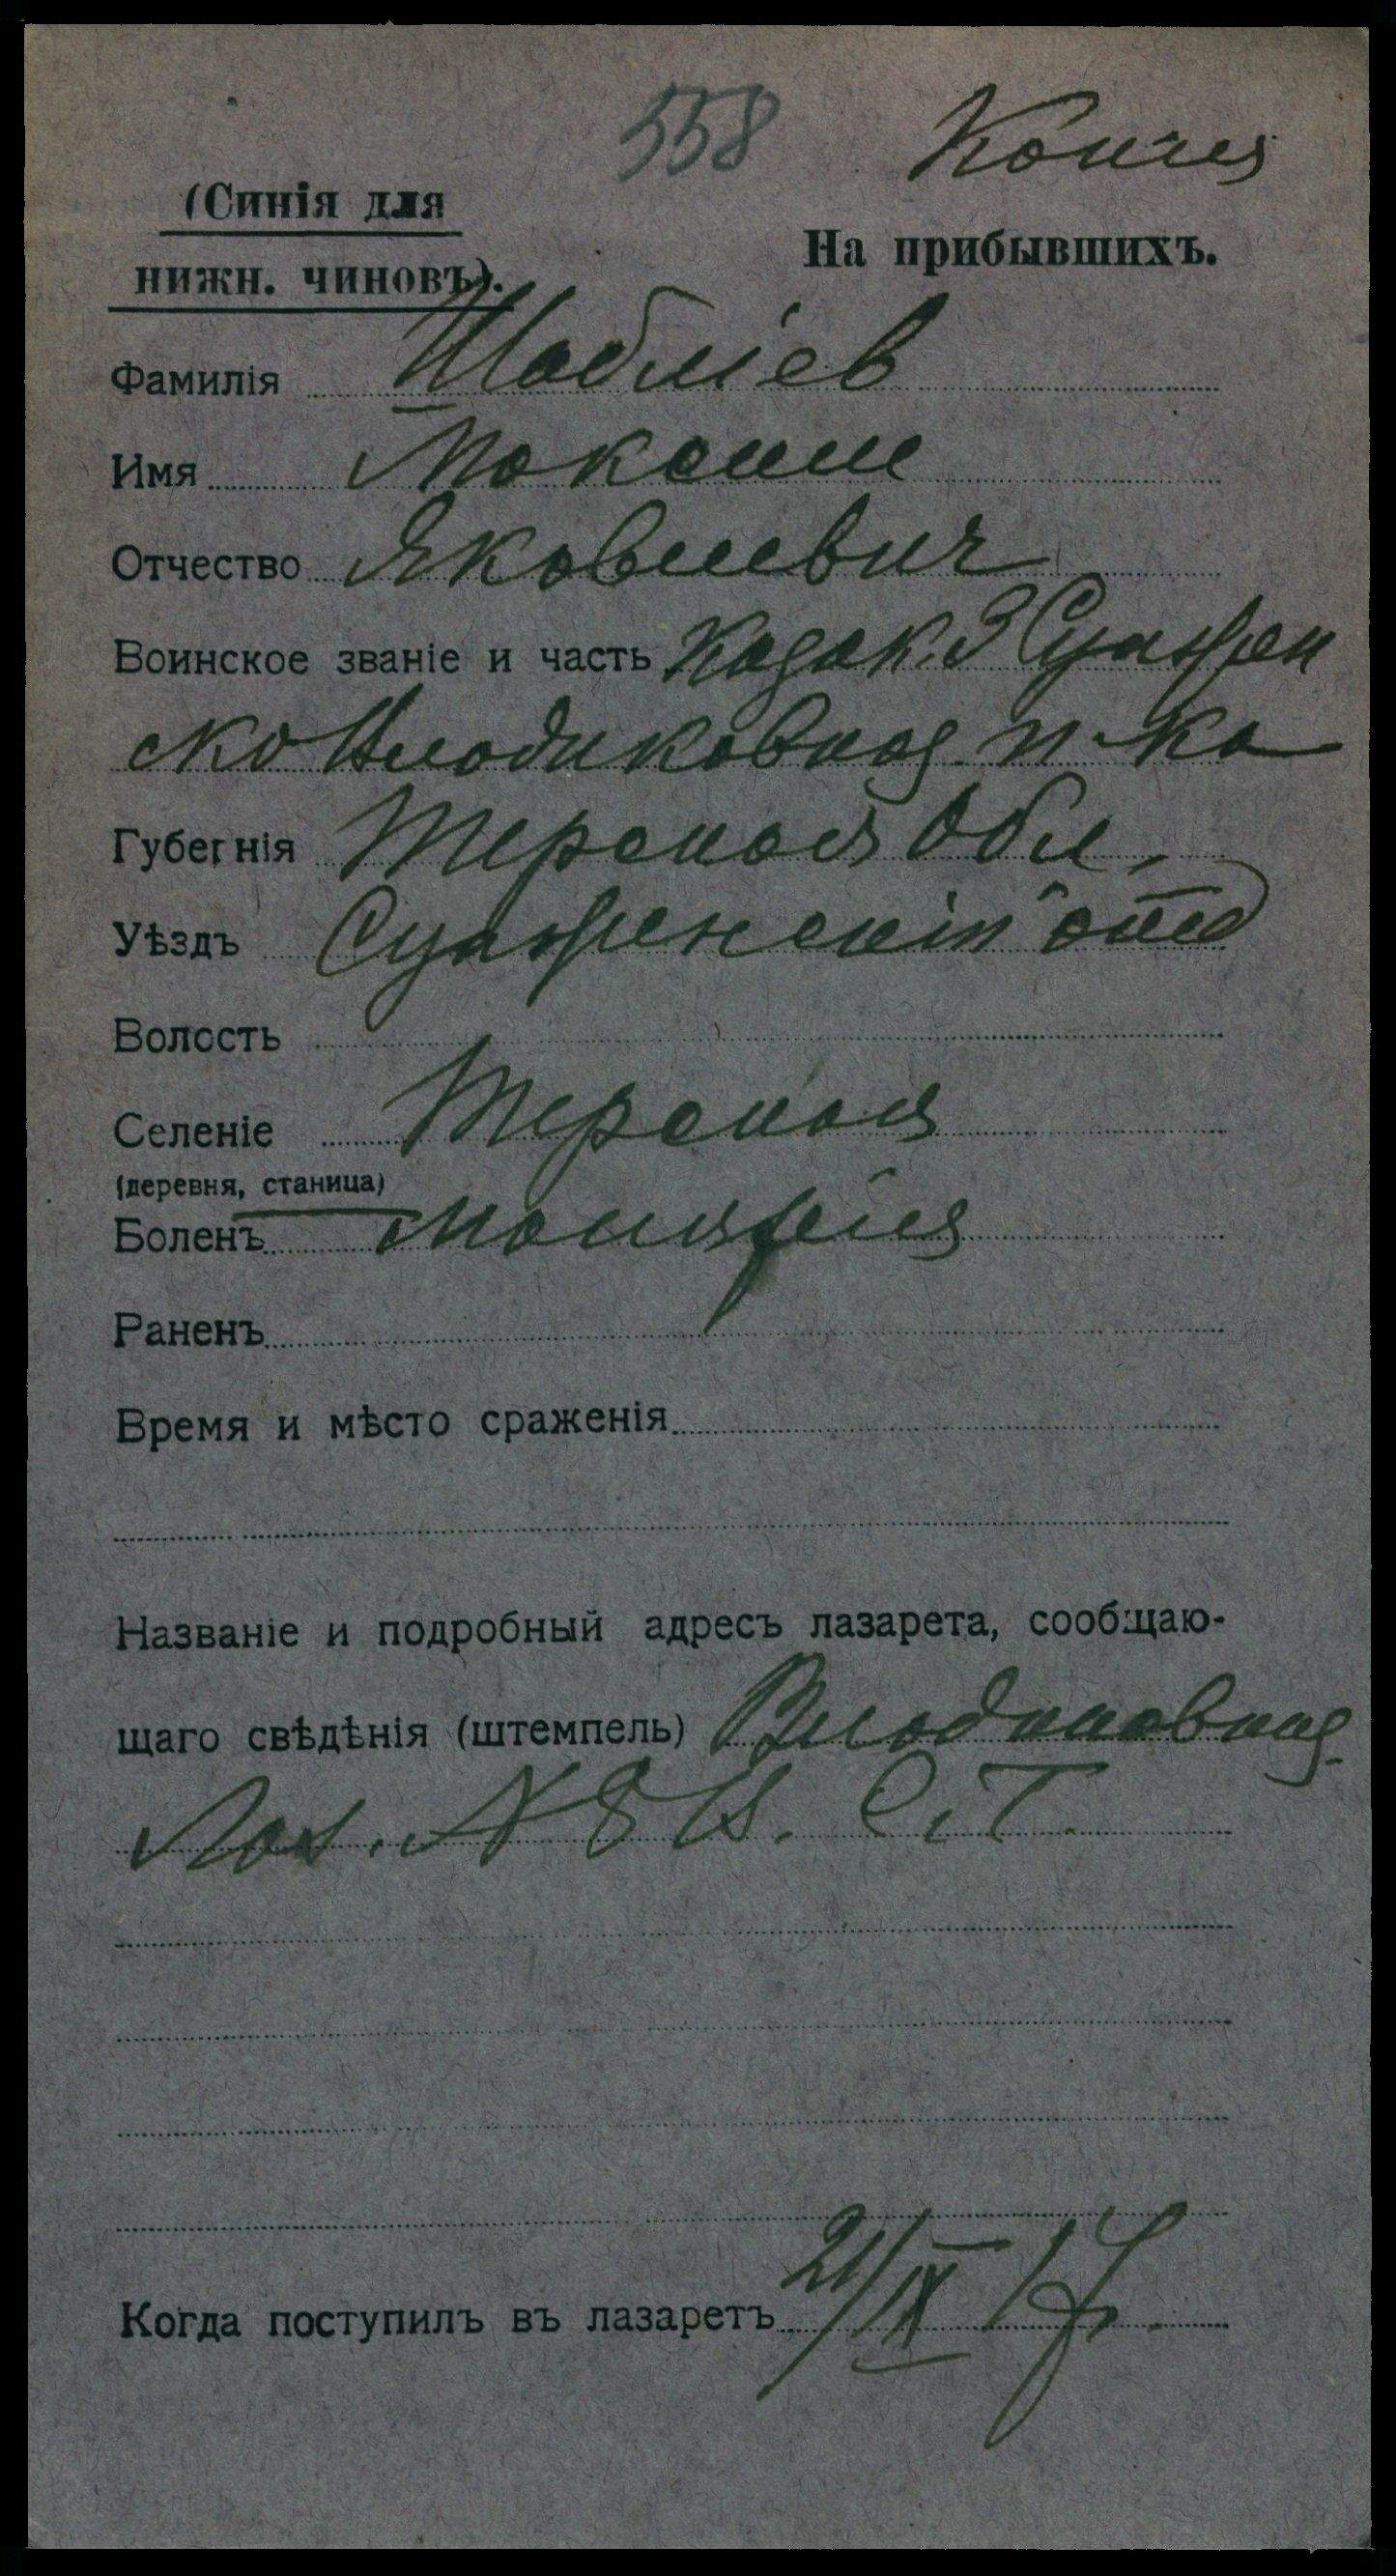 558 Копия
(Синія для
нижн. чиновъ).
На прибывшихъ.
Фамилія Шаблiев
Имя Максим
Отчество Яковлевич
Воинское званіе и часть Казак. 3 Сунжен
ско Владикавказ. п-ка
Губернія Терская Обл.
Уѣздъ Сунженскій отд
Волость
Селеніе Терская
(деревня, станица)
Боленъ малярія
Раненъ
Время и мѣсто сраженія
Названіе и подробный адресъ лазарета, сообщаю-
щаго свѣдѣнія (штемпель) Владикавказ.
Лаз. № 8 В. С. Г.
Когда поступилъ въ лазаретъ 21/IX 17.